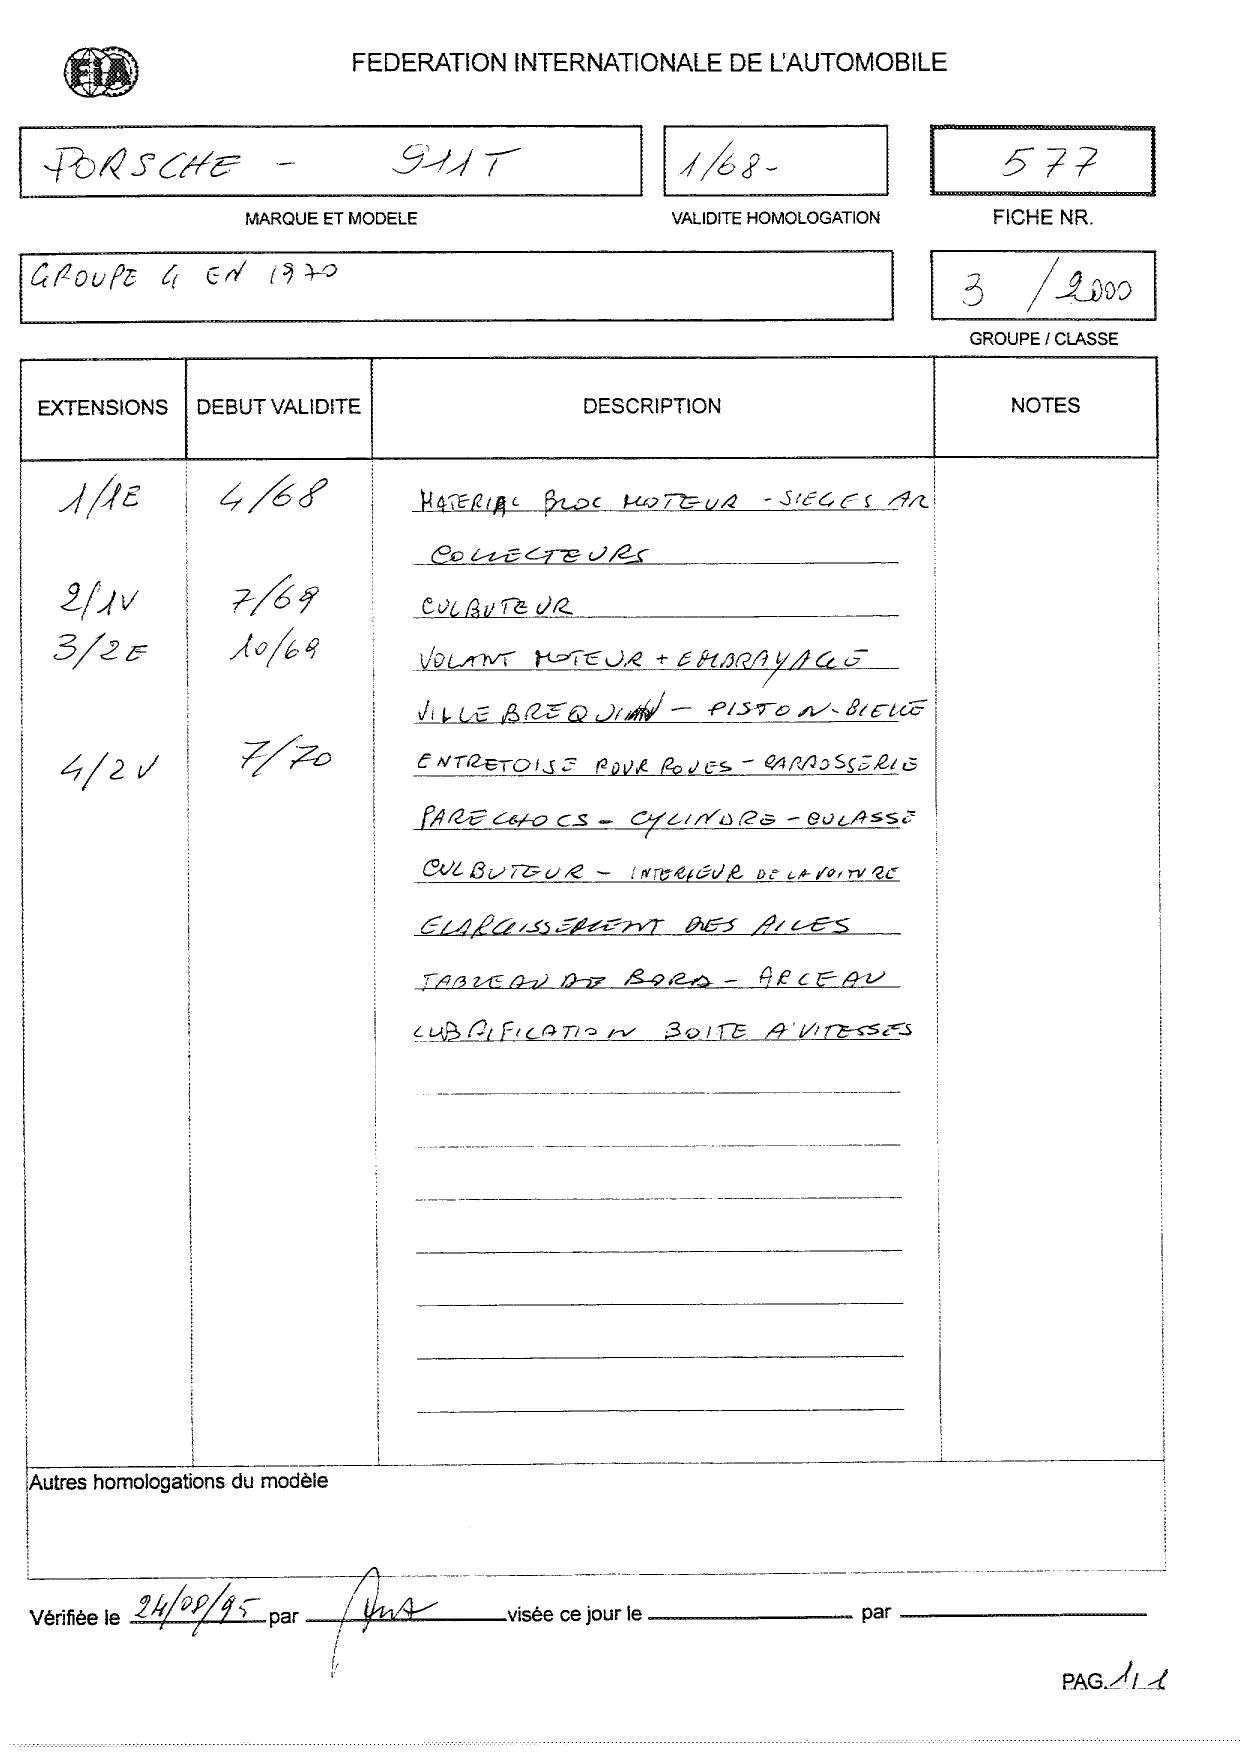 FIA
FEDERATION INTERNATIONALE DE L'AUTOMOBILE
PORSCHE - 911T
1/68-
577
MARQUE ET MODELE
VALIDITE HOMOLOGATION
FICHE NR.
GROUPE 4 EN 1970
3 / 2000
GROUPE / CLASSE
EXTENSIONS DEBUT VALIDITE DESCRIPTION NOTES
1/1E 4/68 MATERIAL BLOC MOTEUR - SIEGES AR
COLLECTEURS
2/1V 7/69 CULBUTEUR
3/2E 10/69 VOLANT MOTEUR + EMBRAYAGE
VILLEBREQUIN - PISTON - BIELLE
4/2V 7/70 ENTRETOISE POUR ROUES - CARROSSERIE
PARECHOCS - CYLINDRE - CULASSE
CULBUTEUR - INTERIEUR DE LA VOITURE
ELARGISSEMENT DES AILES
TABLEAU DE BORD - ARCEAU
LUBRIFICATION BOITE A VITESSES
Autres homologations du modèle
Vérifiée le 24/08/95 par visée ce jour le par
PAG. 1/1